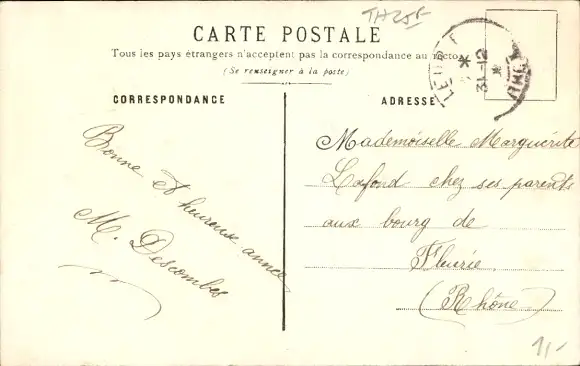 CARTE POSTALE
Tous les pays étrangers n'acceptent pas la correspondance au recto
(Se renseigner à la poste)
CORRESPONDANCE
ADRESSE
Bonne et heureuse année
M. Descombes
Mademoiselle Marguérite
Lafond chez ses parents
aux bourg de
Fleurie
(Rhône)
31-12
11-